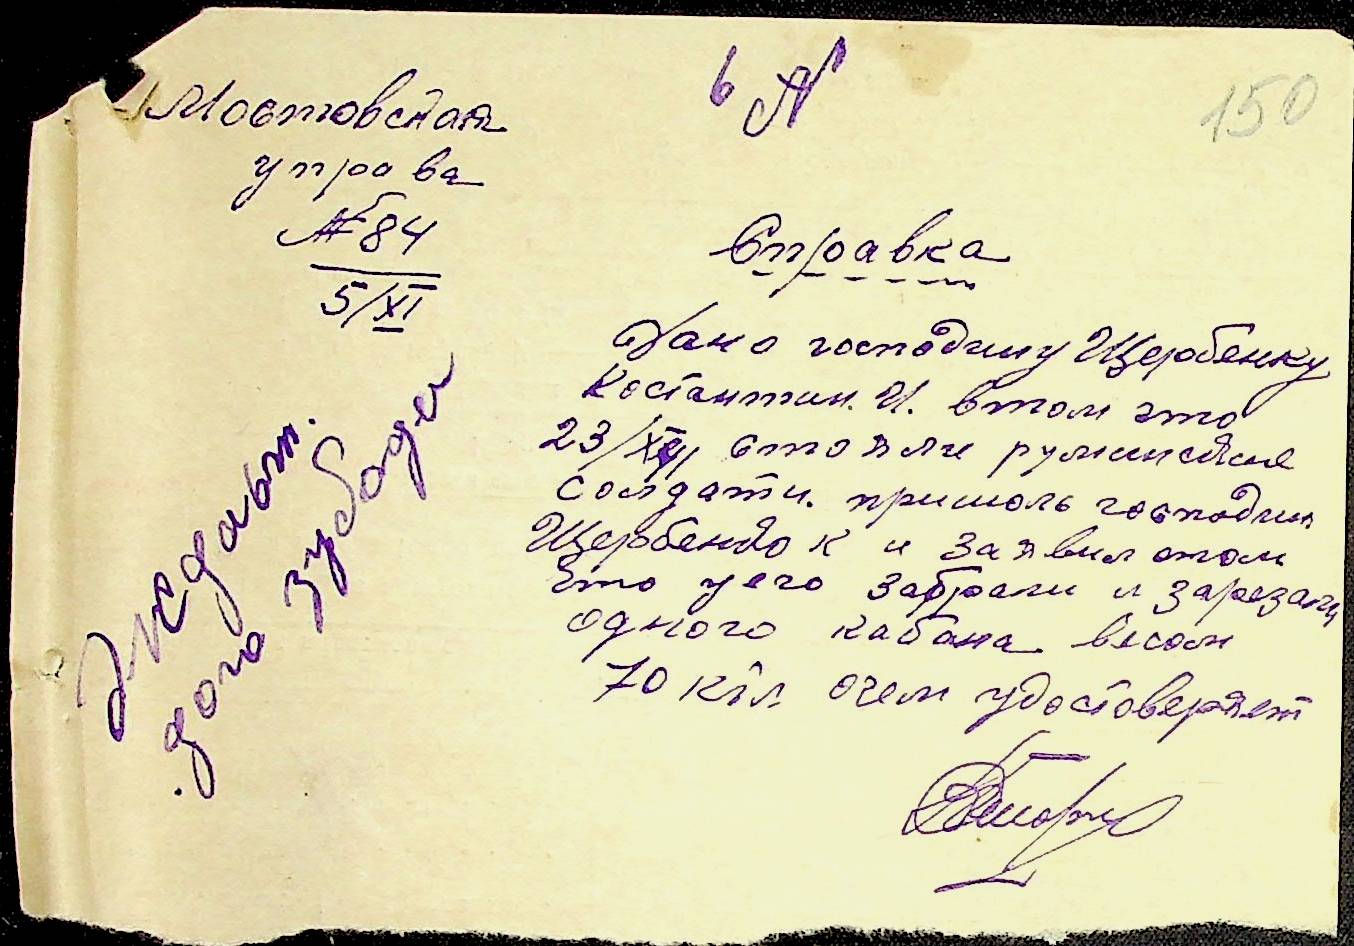 Мостовская
управа
№ 84
5/XI
в А
150
Справка
Дано господину Щербенку
Костантин. И. втом что
23/X стояли руминские
Солдати. пришоль господин
Щербендок и заявил отом
Што у его забрали и зарезали
одного кабана весом
70 кіл очем удостоверяет